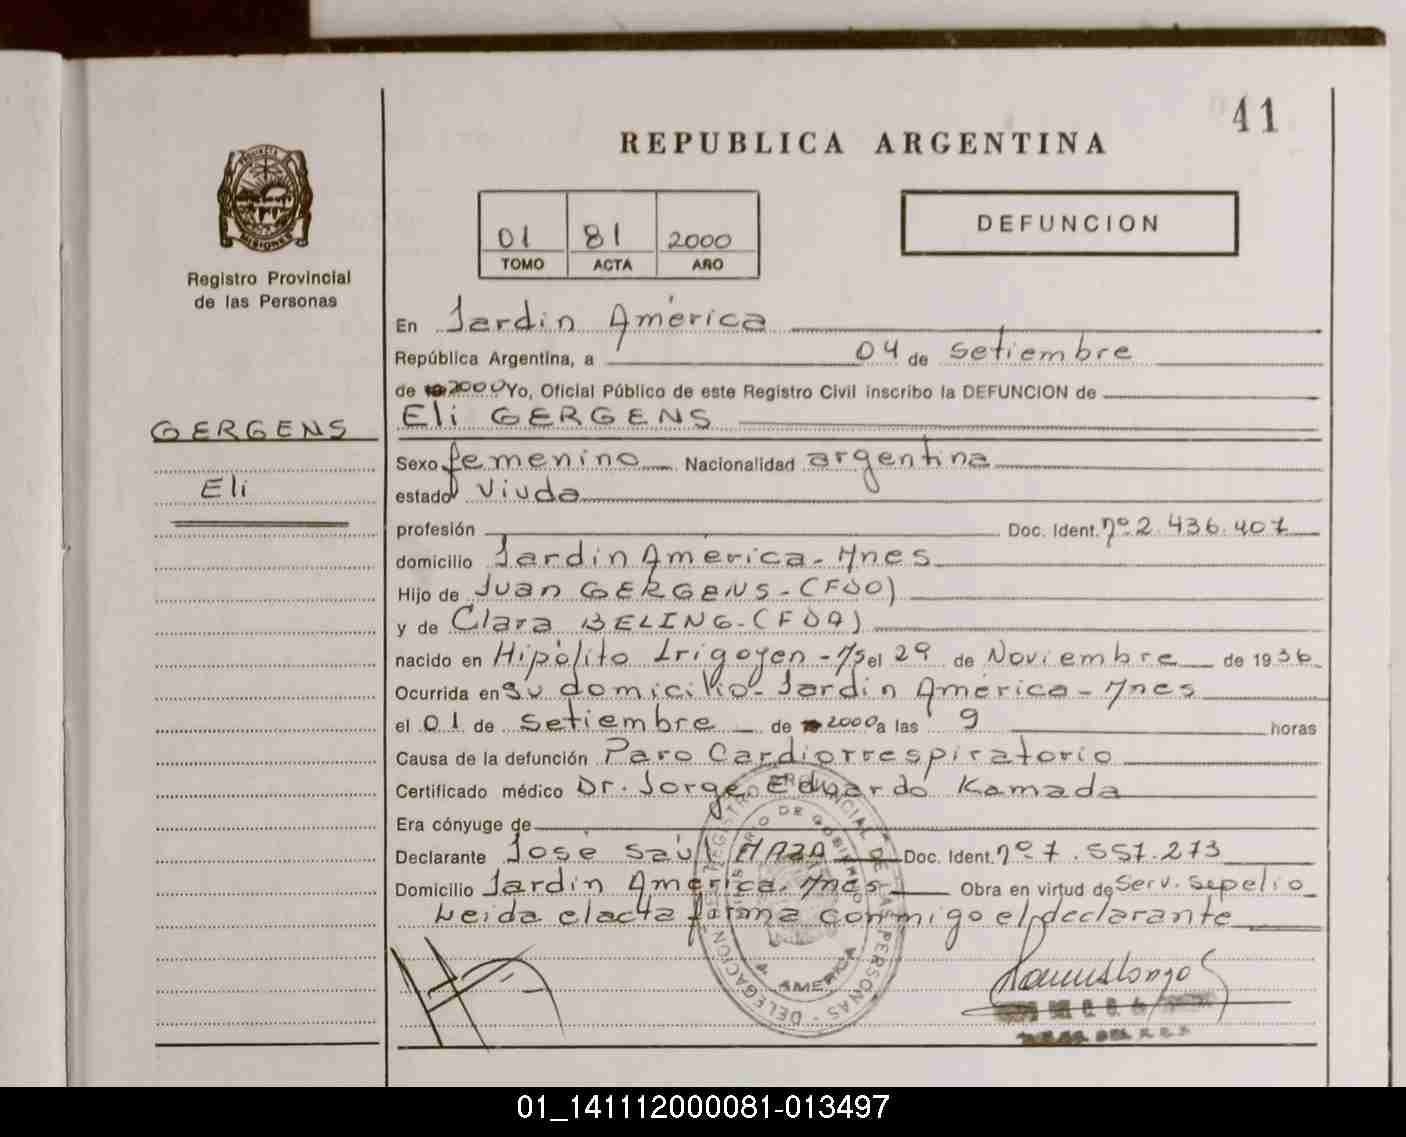 41
REPUBLICA ARGENTINA
PROVINCIA DE
MISIONES
Registro Provincial
de las Personas
01 81 2000
TOMO ACTA AÑO
DEFUNCION
En Jardin América
República Argentina, a 04 de setiembre
de 2000 Yo, Oficial Público de este Registro Civil inscribo la DEFUNCION de
Eli GERGENS
GERGENS
Eli
Sexo femenino Nacionalidad argentina
estado viuda
profesión Doc. Ident. nº 2.436.407
domicilio Jardin América - Mnes
Hijo de Juan GERGENS - (FDO)
y de Clara BELING - (FDA)
nacido en Hipólito Irigoyen - Ms el 29 de Noviembre de 1936
Ocurrida en su domicilio - Jardin América - Mnes
el 01 de setiembre de 2000 a las 9 horas
Causa de la defunción Paro Cardiorrespiratorio
Certificado médico Dr. Jorge Eduardo Kamada
Era cónyuge de
Declarante José Saúl MAZA Doc. Ident. nº 7.557.273
Domicilio Jardin América, Mnes Obra en virtud de Serv. sepelio
Leida el acta firma conmigo el declarante
REGISTRO PROVINCIAL DE LAS PERSONAS - DELEGACION
MINISTERIO DE GOBIERNO
J. AMERICA
01_141112000081-013497